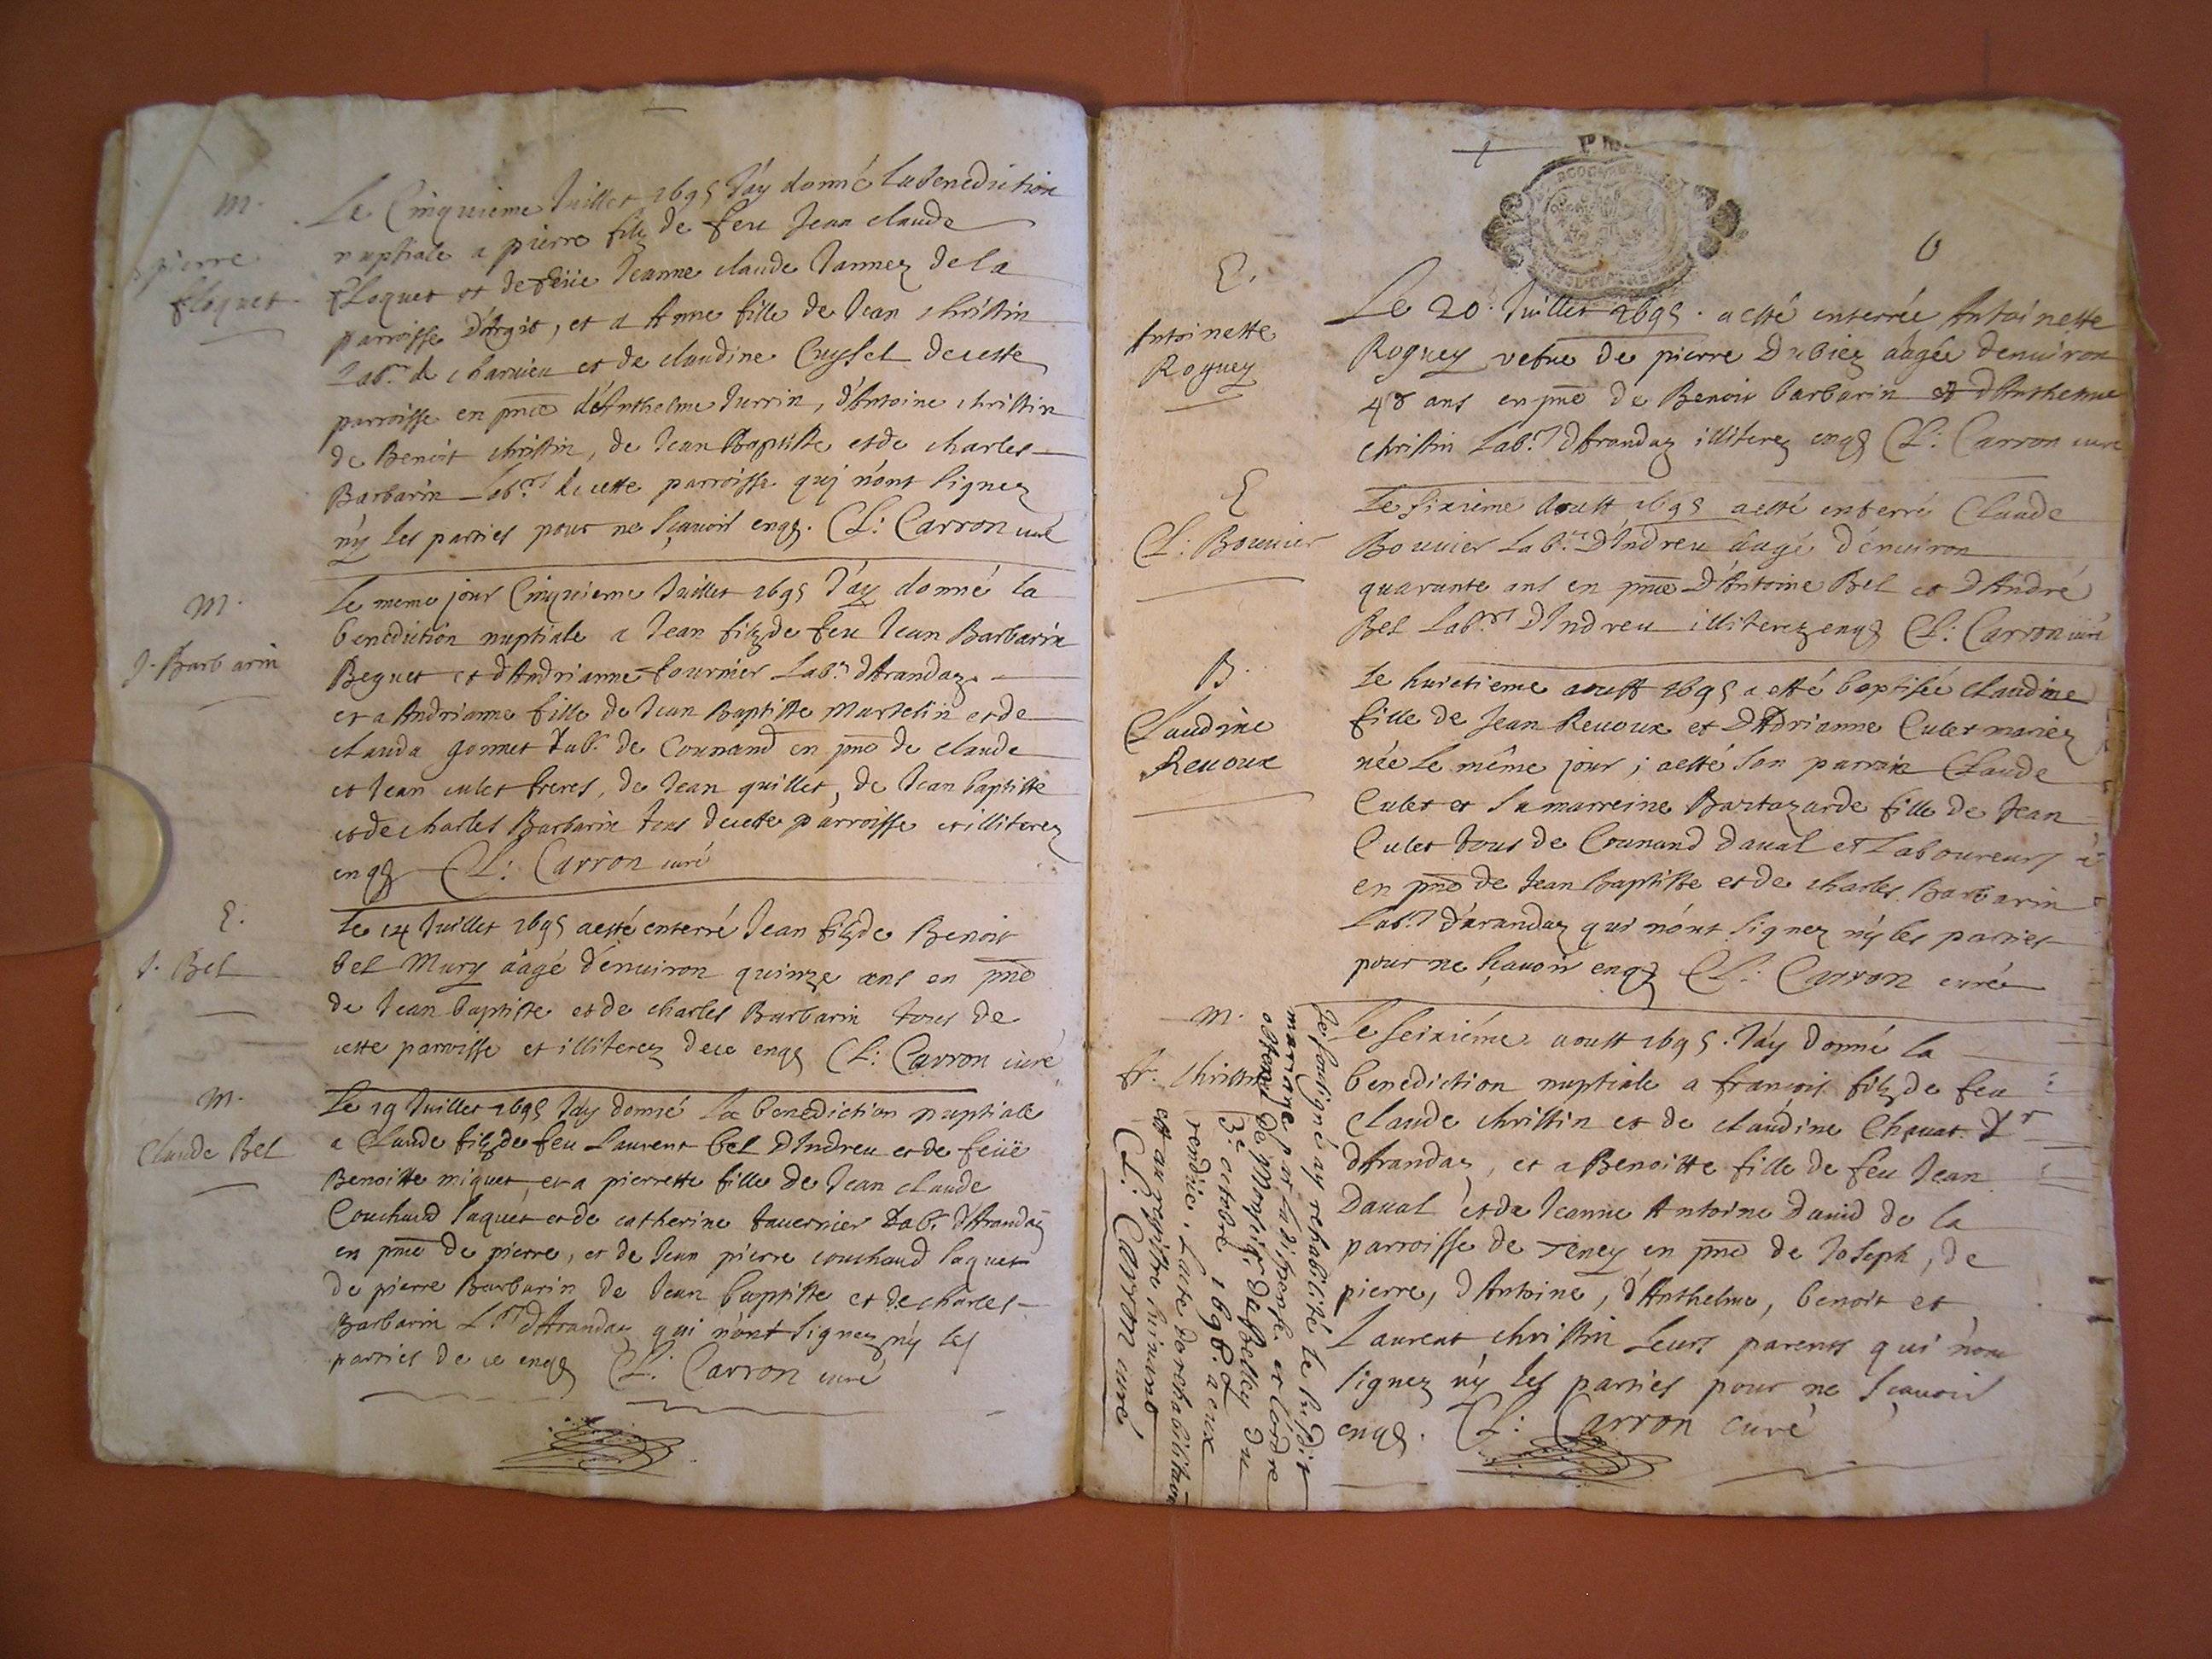 M.
pierre
floquet
Le Cinquieme Juillet 1695 J'ay donné la benediction
nuptiale a pierre filz de feu Jean claude
floquet et de feüe Jeanne claude Jannez de la
parroisse D'Argit, et a Anne fille de Jean christin
Lab.r de charvieu et de claudine Cuysel de cette
parroisse en pñce d'Anthelme Jurrin, d'Antoine christin
de Benoit christin, de Jean Baptiste et de charles
Barbarin Lab.rs de cette parroisse qui n'ont signez
n'y les parties pour ne sçavoir enqs. Cl: Carron curé
M.
J. Barbarin
Le meme jour Cinquieme Juillet 1695 J'ay donné la
benediction nuptiale a Jean filz de feu Jean Barbarin
Beguet et d'Andrianne fournier Lab.r d'Arandaz
et a Andrianne fille de Jean Baptiste Martelin et de
clauda gonnet Lab.r de Counand en pñce de claude
et Jean culet freres, de Jean quillet, de Jean baptiste
et de charles Barbarin tous de cette parroisse et illiterez
enqs Cl: Carron curé
E.
J. Bel
Le 14 Juillet 1695 a esté enterré Jean filz de Benoit
bel Mury aagé d'environ quinze ans en pñce
de Jean baptiste et de charles Barbarin tous de
cette parroisse et illiterez de ce enqs Cl: Carron curé
M.
Claude Bel
Le 19 Juillet 1695 J'ay donné La benediction nuptiale
a Claude filz de feu Laurent bel D'Indreu et de feüe
Benoitte miguet, et a pierrette fille de Jean claude
Couchaud Paquet et de catherine tavernier Lab.r d'Arandaz
en pñce de pierre, et de Jean pierre couchaud paquet
de pierre Barbarin de Jean baptiste et de charles
Barbarin L.rs d'Arandaz qui n'ont signez n'y les
parties de ce enqs Cl: Carron curé
6
E.
Antoinette
Roguey
Le 20. Juillet 1695. a esté enterrée Antoinette
Roguey vefve de pierre Dubiez aagée d'environ
48 ans en pñce de Benoit barbarin et d'Anthelme
christin Lab.rs d'Arandaz illiterez enqs Cl: Carron curé
E
Cl: Bouvier
Le sixième Aoust 1695 a esté enterré Claude
Bouvier Lab.r D'Indreu aagé d'environ
quarante ans en pñce D'Antoine Bel et D'André
Bel Lab.rs D'Indreu illiterez enqs Cl: Carron curé
B.
Claudine
Revoux
Le huictieme aoust 1695 a esté baptisée claudine
fille de Jean Revoux et D'Adrianne Culet mariez
née Le même jour; a esté son parrain Claude
Culet et sa marreine Bartazarde fille de Jean
Culet tous de Counand d'aval et Laboureurs
en pñce de Jean baptiste et de charles Barbarin
Lab.rs d'arandaz qui n'ont signez n'y les parties
pour ne sçavoir enqs Cl: Carron curé
M.
fr. christin
Le seizième aoust 1695. J'ay donné la
benediction nuptiale a francois filz de feu
Claude christin et de claudine Chavat L.r
d'Arandaz, et a Benoitte fille de feu Jean
Daval et de Jeanne Antoine David de la
parroisse de Teney en pñce de Joseph, de
pierre, d'Antoine, d'Anthelme, benoit et
Laurent christin Leurs parents qui n'on
signez n'y les parties pour ne sçavoir
enqs. Cl: Carron curé
Je soussigné ay rehabilité le susdit
mariage par la dispense et l'ordre
obtenu de Monseig.r de Belley du
3e octobre 1698. a eux
rendüe, L'acte de rehabilitaon
est au registre suivant
Cl: Carron curé